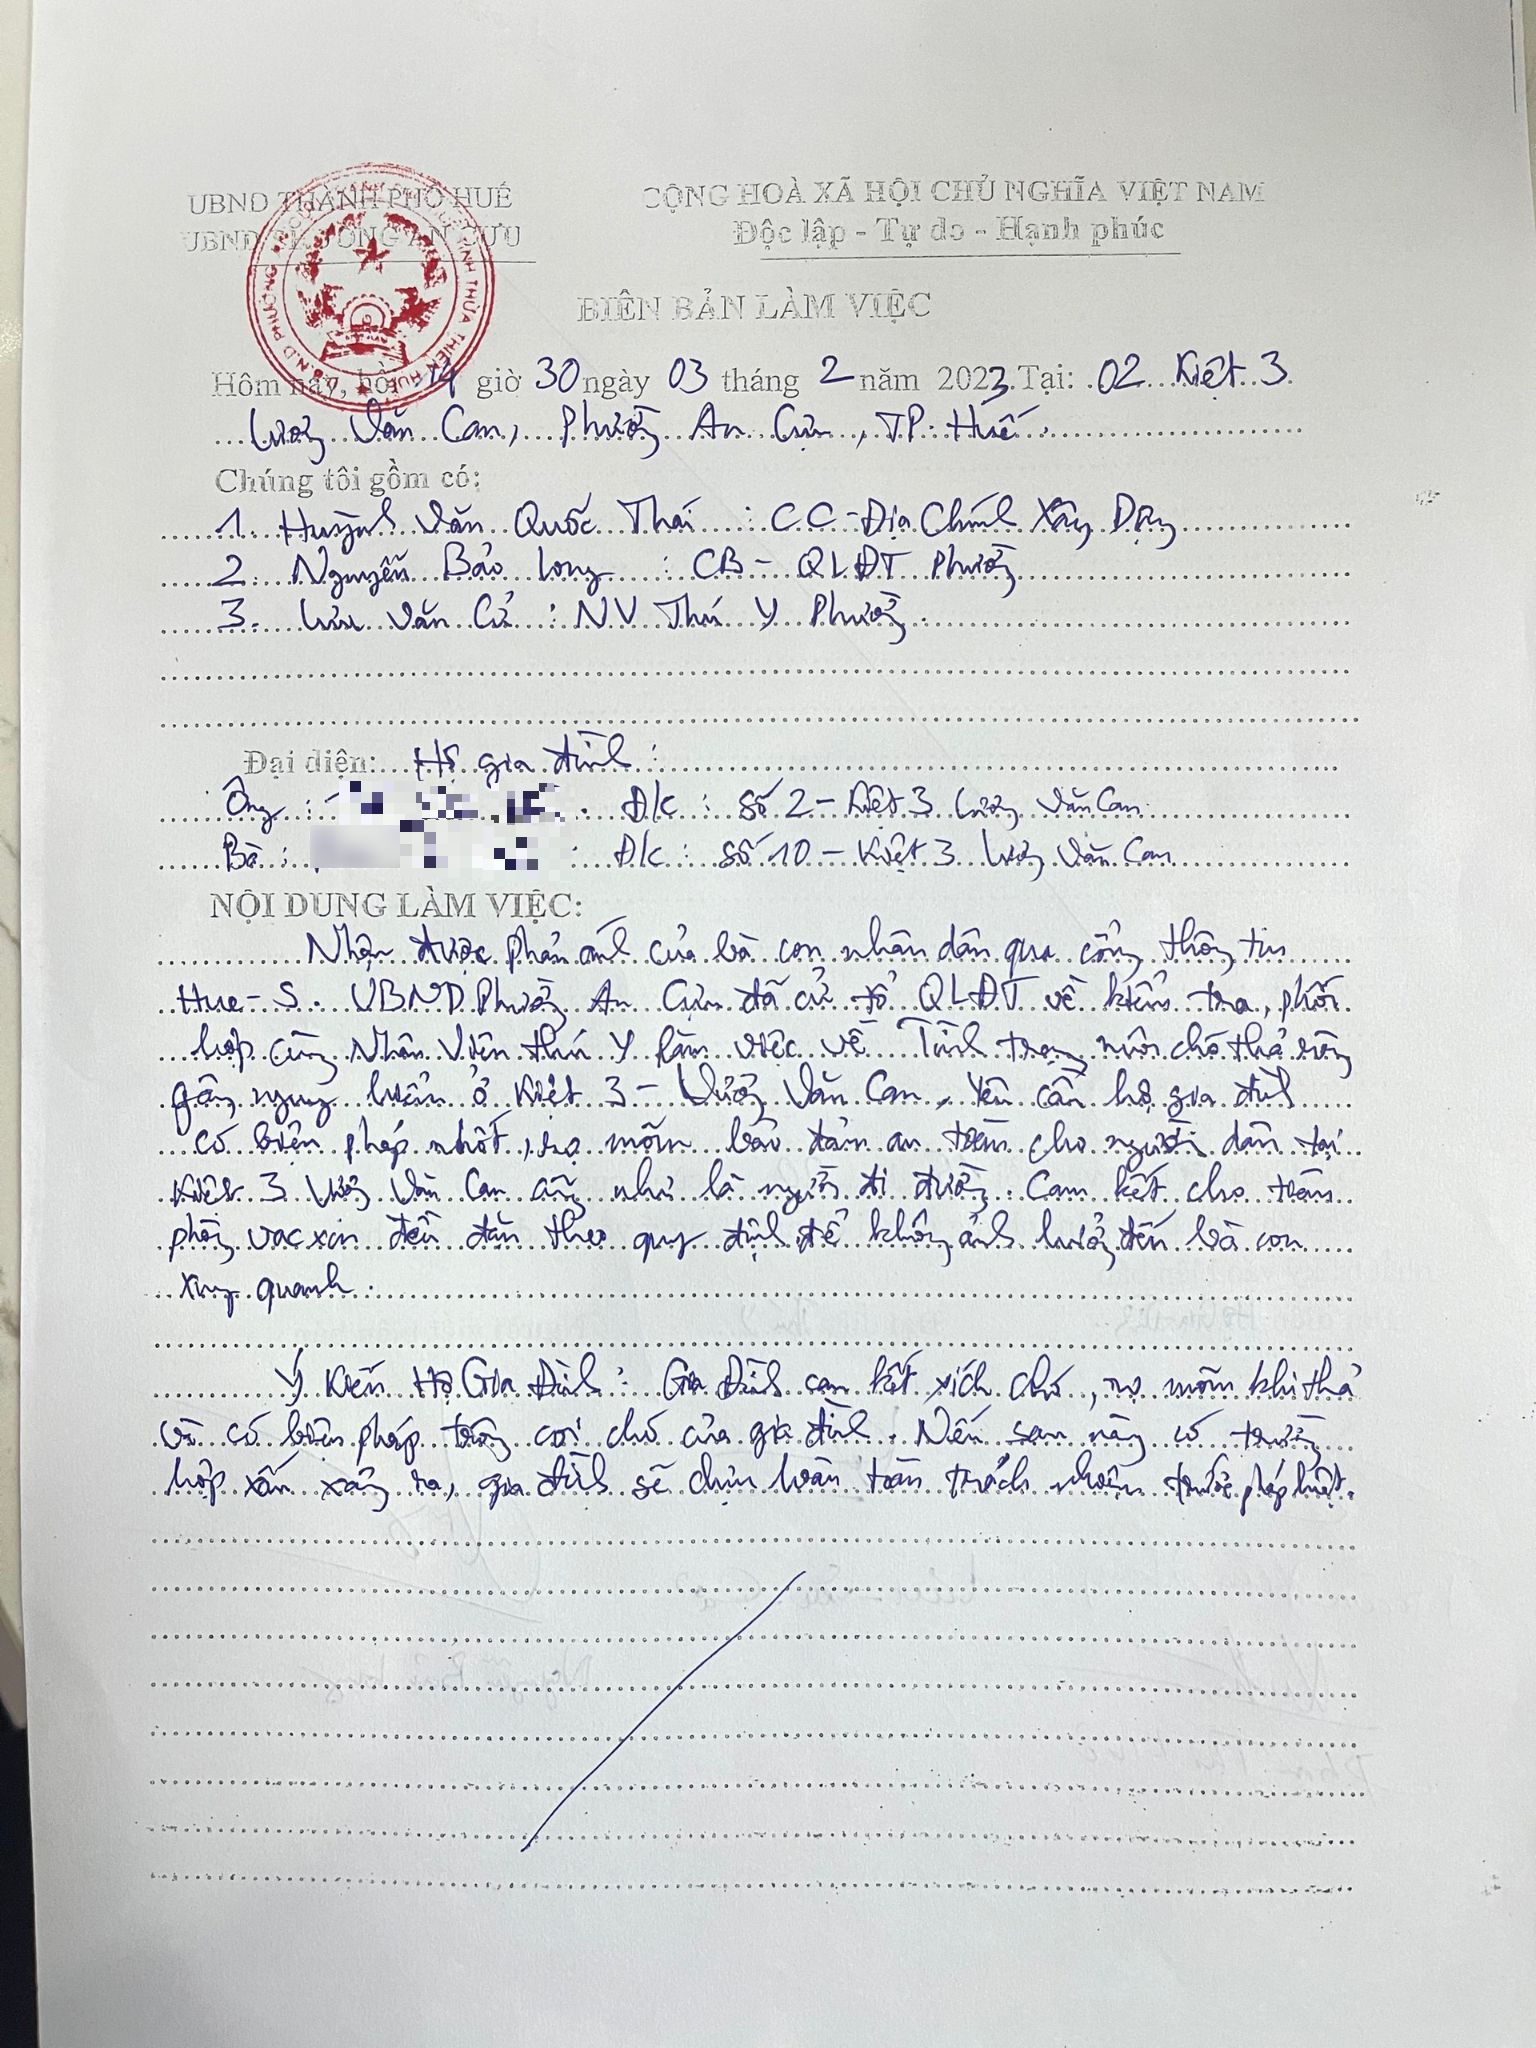 UBND THÀNH PHỐ HUẾ
UBND PHƯỜNG AN CỰU
CỘNG HOÀ XÃ HỘI CHỦ NGHĨA VIỆT NAM
Độc lập - Tự do - Hạnh phúc
BIÊN BẢN LÀM VIỆC
Hôm nay, hồi 14 giờ 30 ngày 03 tháng 2 năm 2023. Tại: 02 Kiệt 3
Lương Văn Can, Phường An Cựu, TP. Huế.
Chúng tôi gồm có:
1. Huỳnh Văn Quốc Thái : CC - Địa Chính Xây Dựng
2. Nguyễn Bảo Long : CB - QLĐT Phường
3. Lưu Văn Cử : NV Thú Y Phường.
Đại diện: Hộ gia đình :
Ông : Đ/c : Số 2 - Kiệt 3 Lương Văn Can
Bà : : Đ/c : Số 10 - Kiệt 3 Lương Văn Can
NỘI DUNG LÀM VIỆC:
Nhận được phản ánh của bà con nhân dân qua cổng thông tin
Hue-S. UBND Phường An Cựu đã cử tổ QLĐT về kiểm tra, phối
hợp cùng Nhân Viên thú y làm việc về Tình trạng nuôi chó thả rông
gây nguy hiểm ở Kiệt 3 - Lương Văn Can. Yêu cầu hộ gia đình
có biện pháp nhốt, rọ mõm bảo đảm an toàn cho người dân tại
Kiệt 3 Lương Văn Can cũng như là người đi đường. Cam kết cho tiêm
phòng vacxin đều đặn theo quy định để không ảnh hưởng đến bà con
xung quanh.
Ý Kiến Hộ Gia Đình : Gia Đình cam kết xích chó, rọ mõm khi thả
và có biện pháp trông coi chó của gia đình. Nếu sau này có trường
hợp xấu xảy ra, gia đình sẽ chịu hoàn toàn trách nhiệm trước pháp luật.